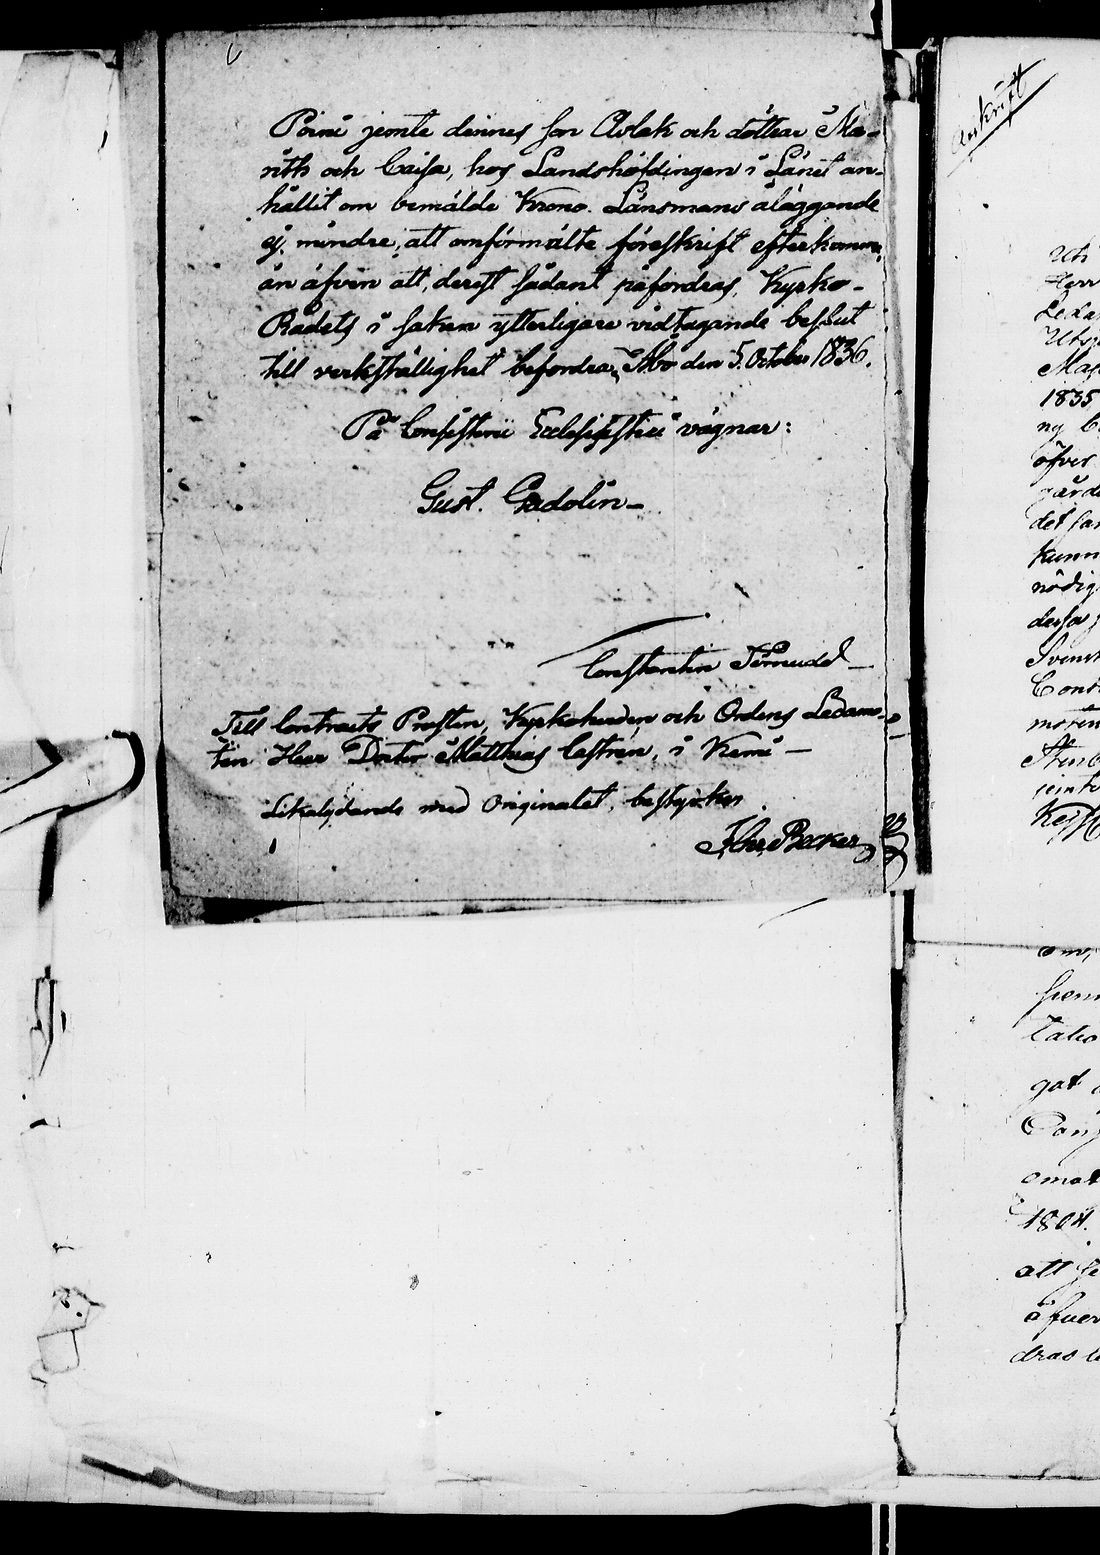 Poimi jemte dennes son Aslak och döttrar Ma-
rith och Caisa, hos Landshöfdingen i Länet an-
hållit om bemälde Krono-Länsmans åläggande
ej mindre, att omförmälte föreskrift efterkomma,
än äfven att, derest sådant påfordras, Kyrko-
Rådets i saken ytterligare vidtagande beslut
till verkställighet befordra; Åbo den 5. October 1836.
På Consistorii Ecclesiastici vägnar:
Gust. Gadolin
Constantin
Till Contracts Prosten, Kyrkoherden och Ordens Ledamo-
ten Herr Doctor Matthias Castrén, i Kemi
Likalydande med Originalet, bestyrker
Joh. Becker
Afskrift
Uts
Herr
Leda
Utsj
Maj
1835
ng
öfver
gärd
det
kunn
nödig
derfor
Svensk
Cons
moten
jemte
om,
frem
tako
got
omat
1804.
att
äfver
dras